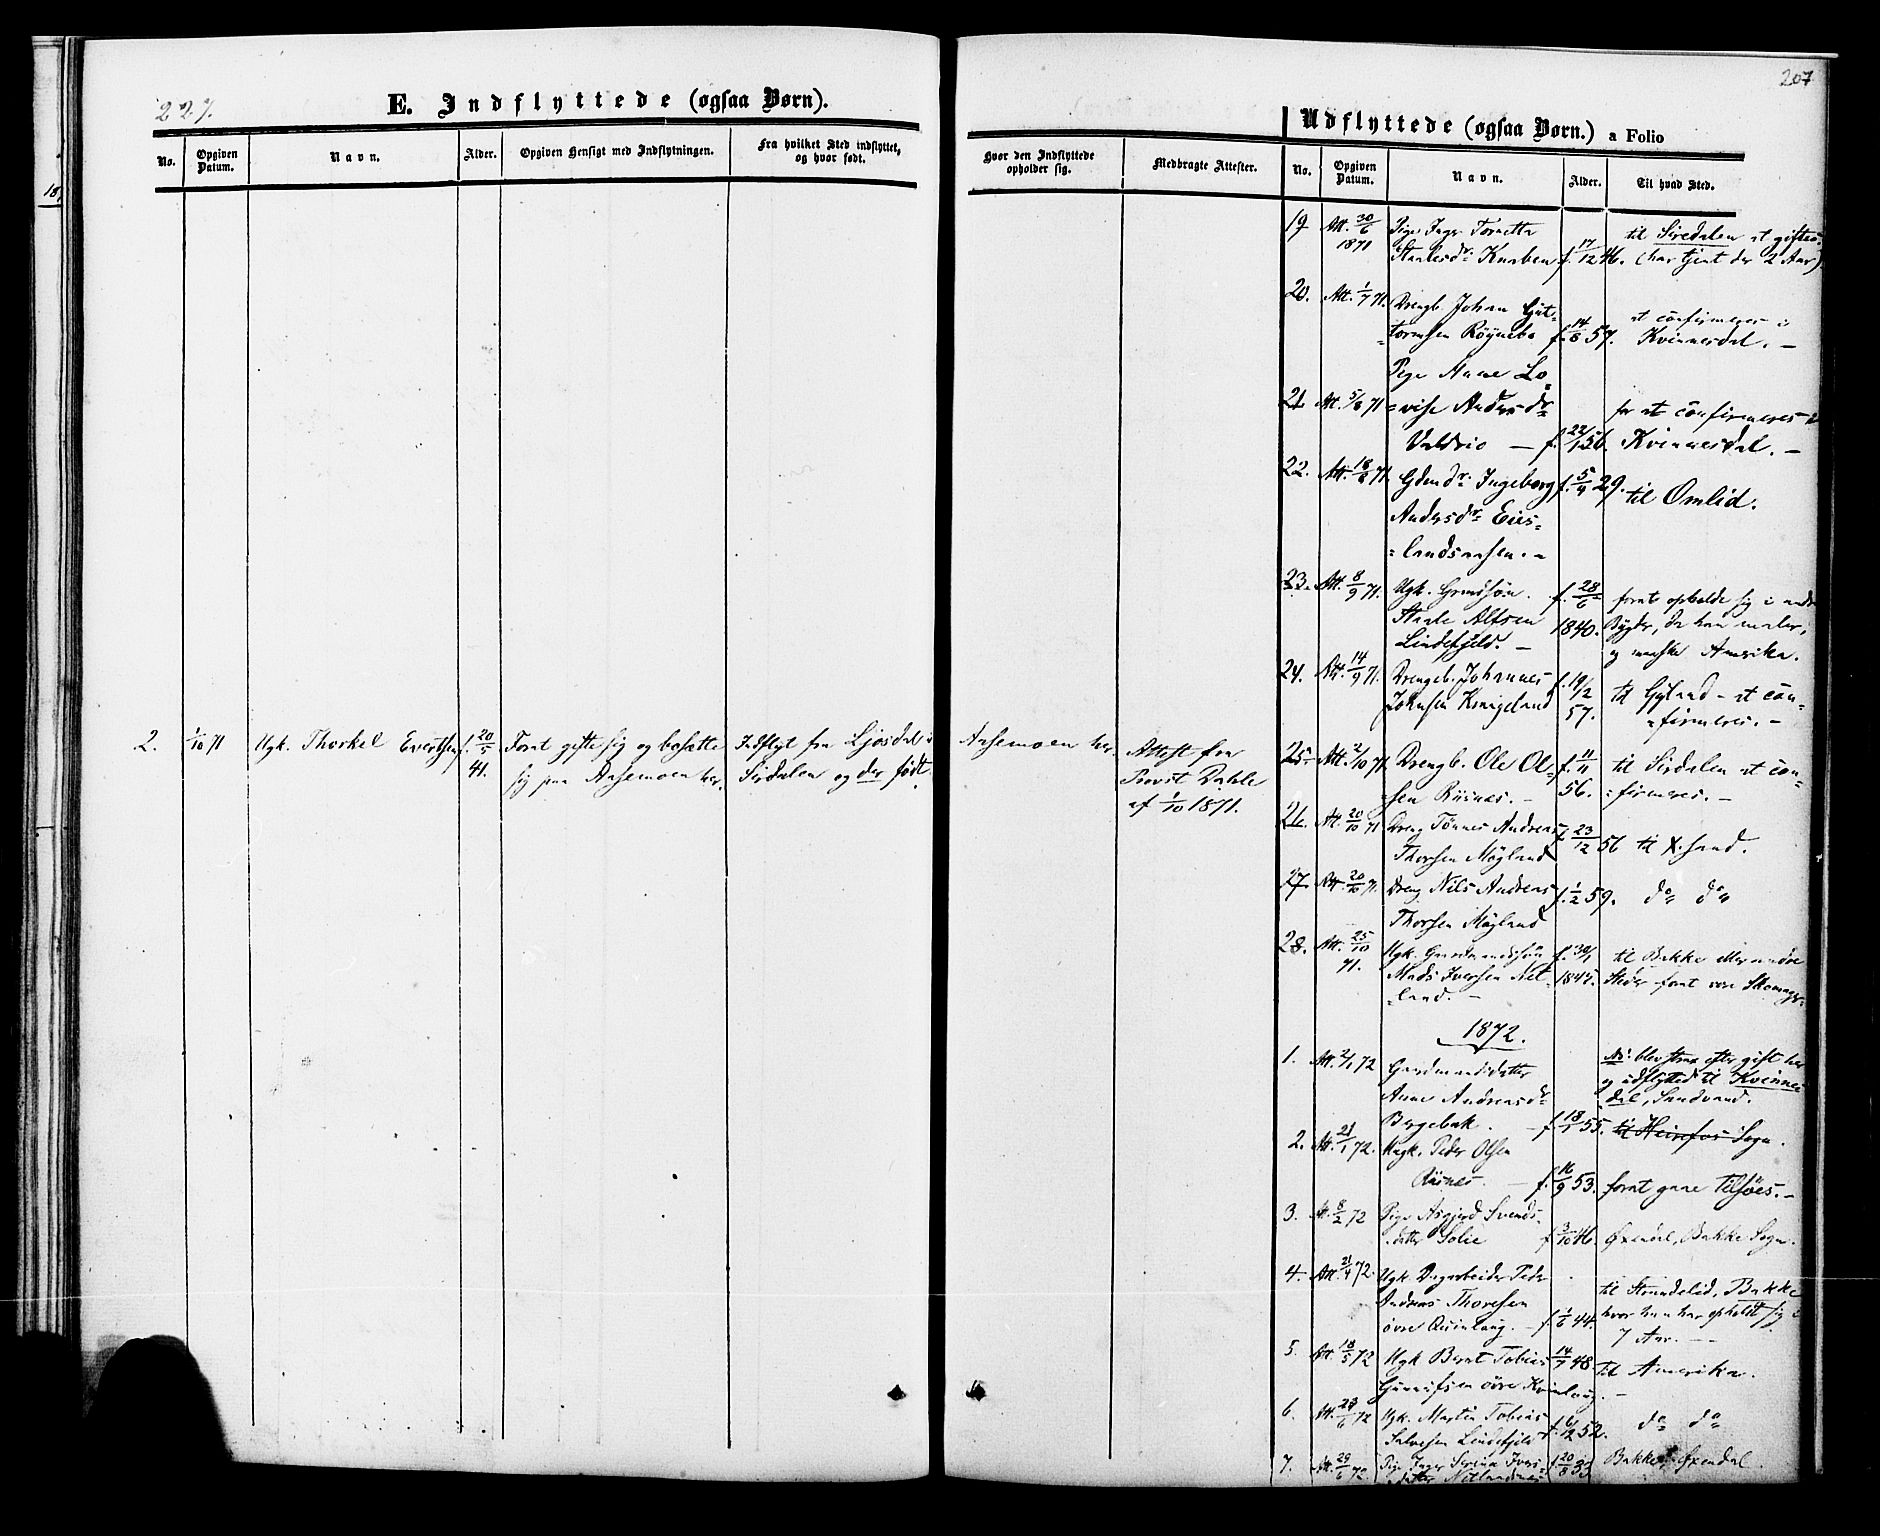 227.
E. Indflyttede (ogsaa Børn).
No.
Opgiven Datum.
Navn.
Alder.
Opgiven Hensigt med Indflytningen.
Fra hvilket Sted indflyttet, og hvor født.
2.
1/10 71
Ugk. Thorkel Evertsen
f. 20/5 41.
Forat gifte sig og bosætte
sig paa Aasemoen her.
Indflyt fra Ljosdal i
Sirdalen og der født.
207
Hvor den Indflyttede opholder sig.
Medbragte Attester.
Aasemoen her.
Attest fra
Provst Dahle
af 1/10 1871.
Udflyttede (ogsaa Børn.) a Folio
No.
Opgiven Datum.
Navn.
Alder.
Til hvad Sted.
19 Att. 30/6 1871 Pige Inger Tonette
Staalesdr. Knaben f. 17/12 46.
til Siredalen at giftes.
(har tjent der 2 Aar)
20. Att. 1/7 71. Drengb. Johan Gut-
tormsen Röynebo f. 14/8 57.
at confirmeres i
Kvinnesdal. –
21 Att. 5/8 71 Pige Anne Lo
=vise Andersdr
Valdrio – f. 22/12 56.
for at confirmeres i
Kvinnesdal. –
22. Att. 18/8 71. Gdmdr. Ingeborg
Andersdr Eies-
=landsaasen. –
f. 5/4 29. til Omlid.
23. Att. 8/9 71. Ugk. Grmdsøn.
Staale Alfsen
Lindefjeld. –
f. 28/6 1840.
forat opholde sig i andre
Bygder, da han maler,
og maaske Amerika.
24. Att. 14/9 71. Drengeb. Johannes
Johnsen Kvingeland
f. 19/2 57.
til Gyland – at con-
=firmeres. –
25 Att. 2/10 71. Drengb. Ole Ol-
sen Risnæs. –
f. 11/11 56.
til Sirdalen at con-
=firmeres. –
26. Att. 20/10 71 Dreng Tönnes Andreas
Thorsen Mögland
f. 23/12 56 til X.sand.
27. Att. 20/10 71. Dreng Nils Andreas
Thorsen Mögland
f. 1/2 59. do do
28. Att. 25/10 71. Ugk. Gaardmandssøn
Mads Iversen Net-
=land. –
f. 30/1 1845.
til Bakke eller andre
Steder forat være Skomager
1872.
1. Att. 2/1 72 Gaardmandsdatter
Anne Andreasdr
Bergebak. – f. 18/1 55.
NB. blev strax efter gift her
og udflytted til Kvinnes-
dal, Sandvand.
til Heinfos Sogn.
2. Att. 21/1 72. Ungk. Peder Olsen
Risnæs. – f. 16/9 53. forat gaae tilsöes. –
3. Att. 8/2 72 Pige Asgjerd Svends-
datter Solie f. 3/10 46. Øxendal, Bakke Sogn.
4. Att. 21/4 72. Ugk. Dagarbeider Peder
Andreas Thoresen
övre Qvinlaug. – f. 1/6 44.
til Strandelid, Bakke
hvor han har opholdt sig i
7 Aar. –
5. Att. 18/5 72 Ugk Bernt Tobias
Gunulfsen övre Kvinlaug. –
14/7 48. til Amerika.
6. Att. 23/6 72 Ugk. Martin Tobias
Salvesen Lindefjeld f. 6/12 52. do do
7. Att. 29/6 72 Pige Inger Serine Ivers-
datter Netlandnes f. 20/8 33 Bakke, Øxendal.